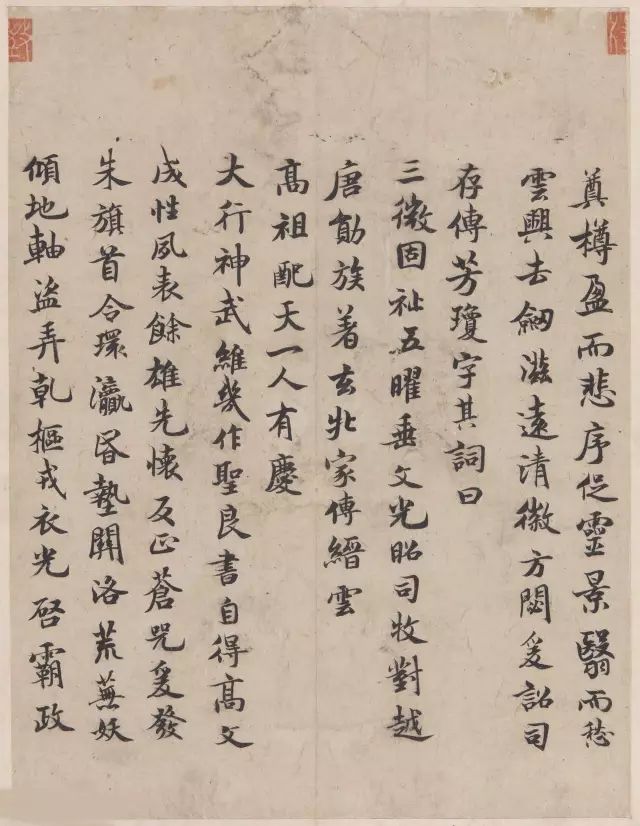 奠樽盈而悲序促靈景翳而愁
雲興去劒滋遠清徽方閟爰詔司
存傳芳瓊字其詞曰
三微固祉五曜垂文光昭司牧對越
唐勛族著玄牝家傳縉雲
高祖配天一人有慶
大行神武維幾作聖良書自得高文
成性夙表餘雄先懷反正蒼咒爰發
朱旗首令環瀛昏墊關洛荒蕪妖
傾地軸盜弄乾樞戎衣光啓霸政